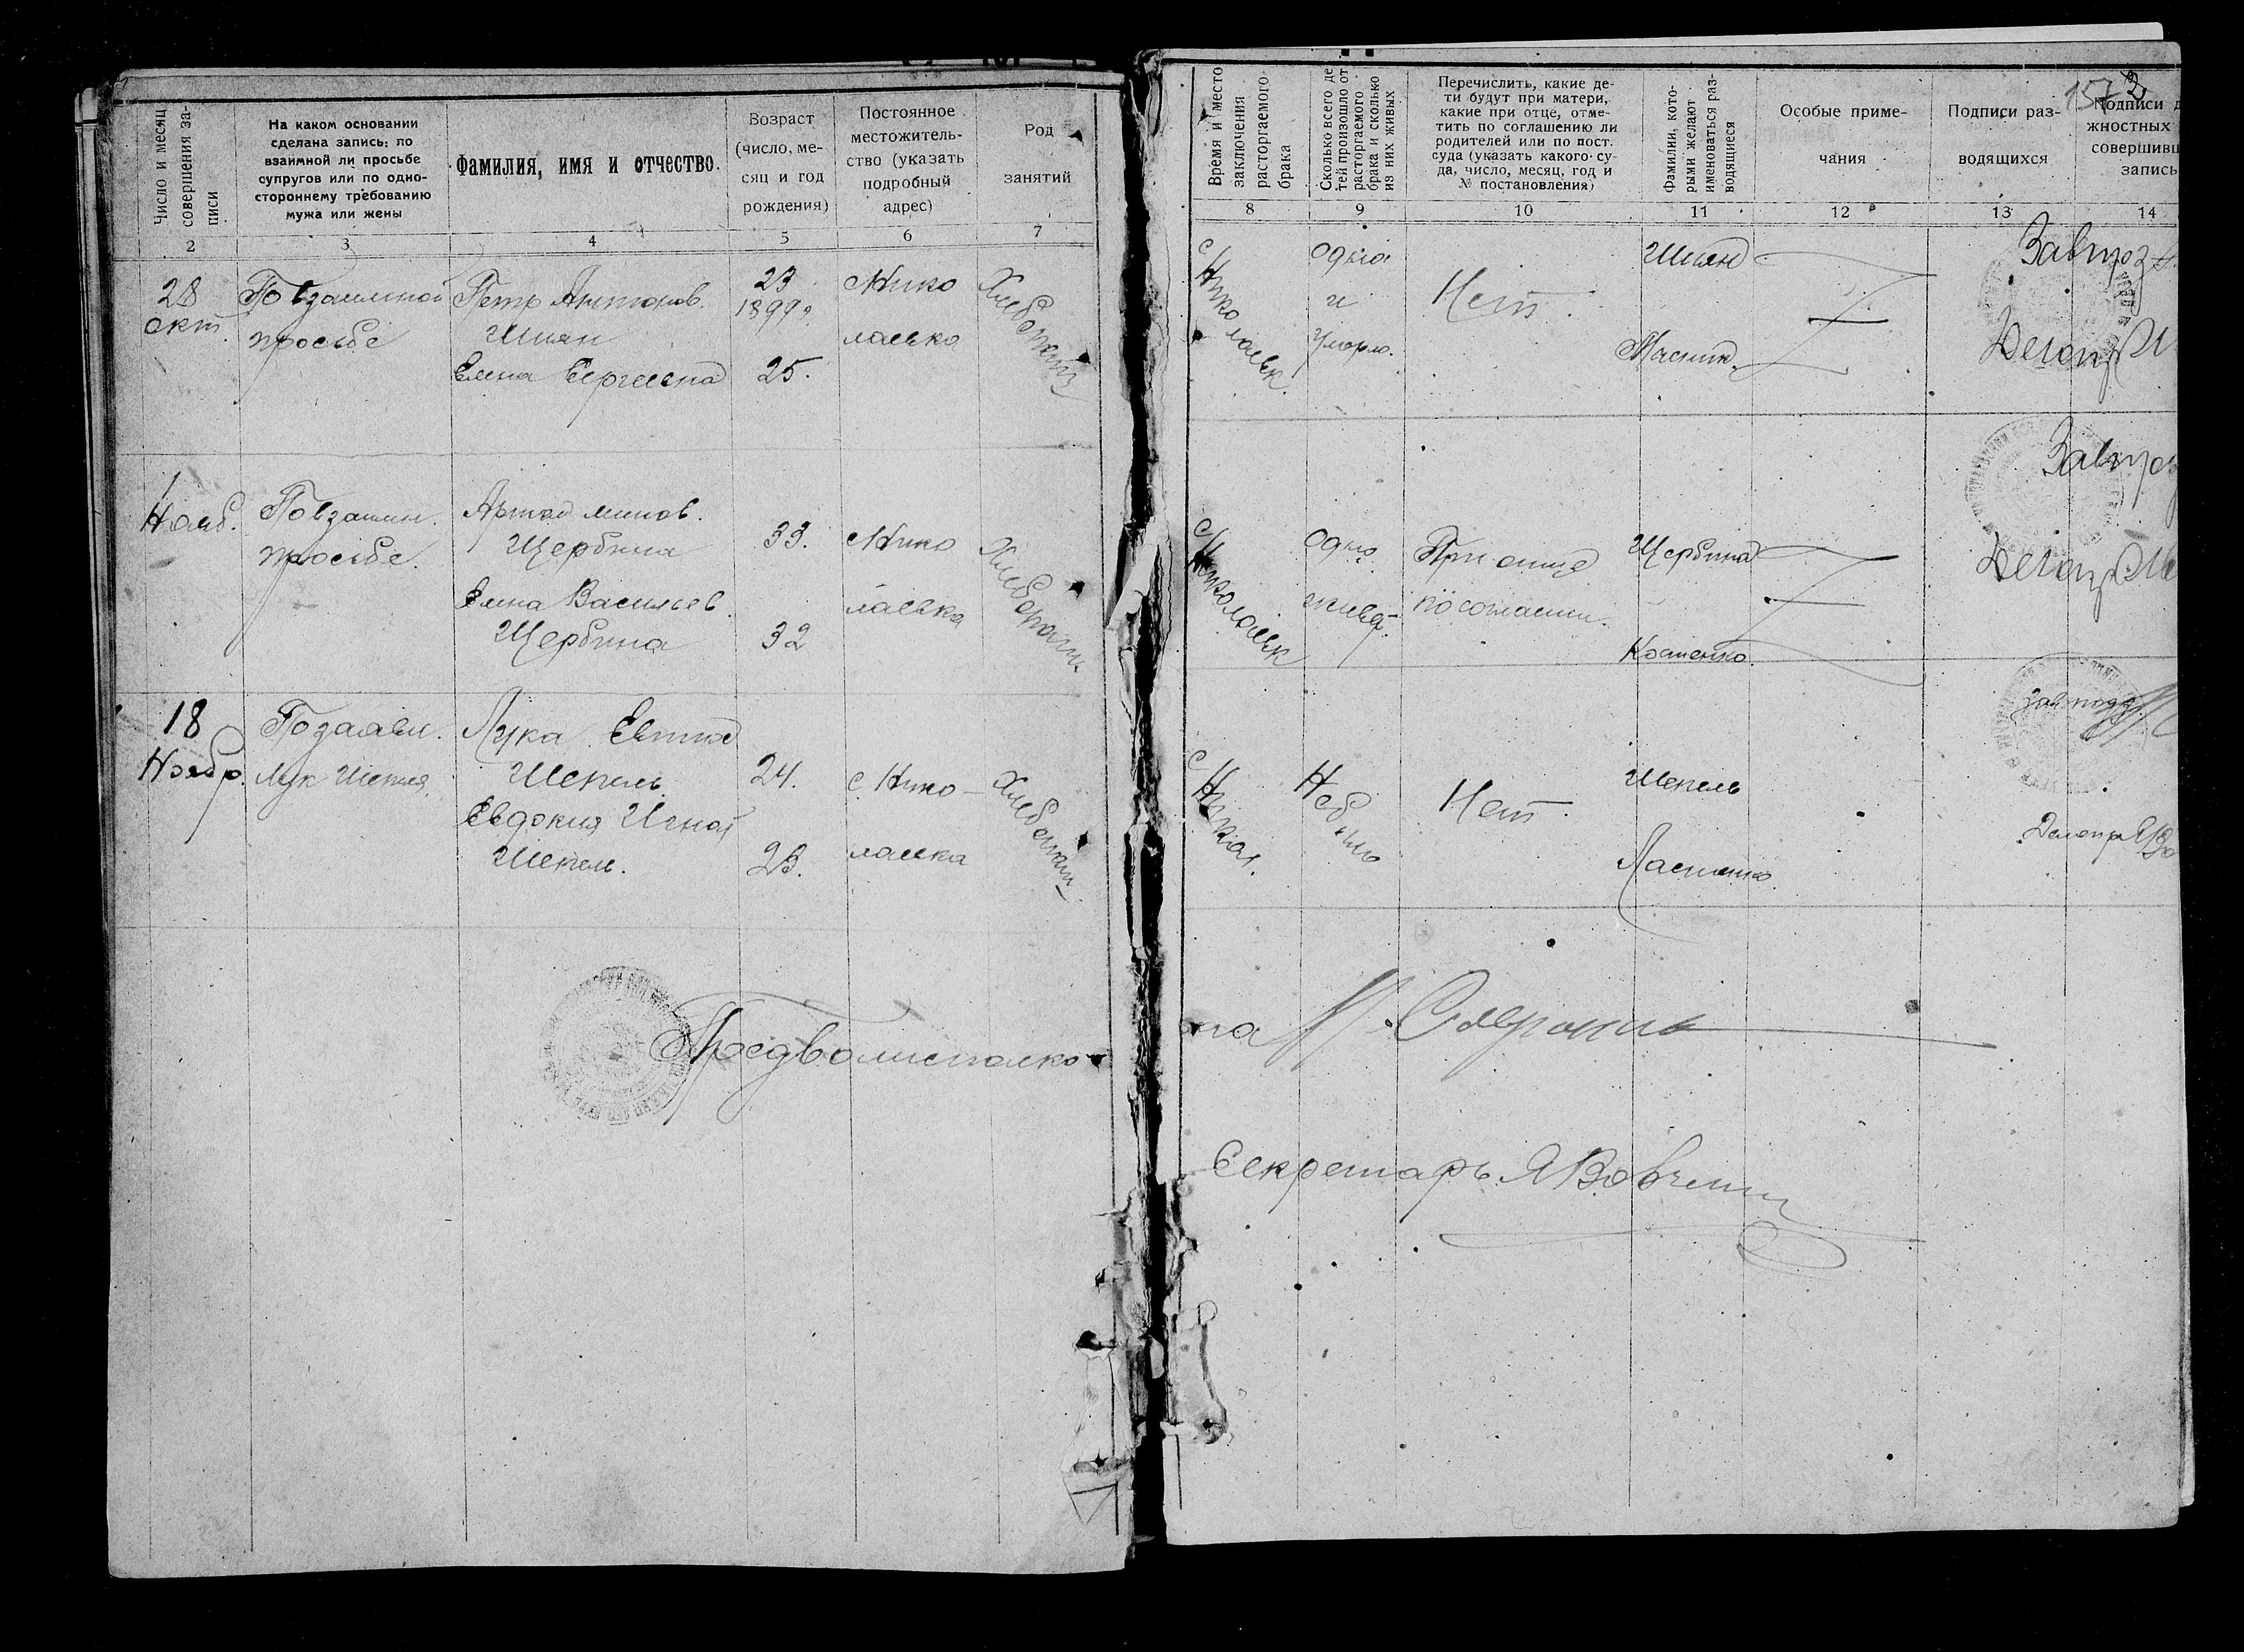 Число и месяц
совершения за-
писи
На каком основании
сделана запись: по
взаимной ли просьбе
супругов или по одно-
стороннему требованию
мужа или жены
Фамилия, имя и отчество.
Возраст
(число, ме-
сяц и год
рождения)
Постоянное
местожитель-
ство (указать
подробный
адрес)
Род
занятий
2
3
4
5
6
7
28
окт.
По взаимной
просьбе
Петр Антонов.
Шиян
Елена Сергеевна
23
1899 г.
25.
с Нико
лаевко
Хлебопаш
1
Нояб.
По взаимн.
просьбе.
Щербина
Елена Васильев.
Щербина
33.
32
с Нико
лаевка
Хлебопашц
18
Ноябр.
По заявл.
Лук Шепеля.
Лука
Шепель.
Евдокия Игнат
Шепель.
24.
23.
с. Нико-
лаевка
Хлебопаш
Предволисполко
Время и место
заключения
расторгаемого
брака
Сколько всего де
тей произошло от
расторгаемого
брака и сколько
из них живых
Перечислить, какие де-
ти будут при матери,
какие при отце, отме-
тить по соглашению ли
родителей или по пост.
суда (указать какого су-
да, число, месяц, год и
№ постановления)
Фамилии, кото-
рыми желают
именоваться раз-
водящиеся
Особые приме-
чания
Подписи раз-
водящихся
Подписи д
жностных
совершивш
запись
8
9
10
11
12
13
14
с Николаевк.
одно
и
умерло.
Нет.
Шиян
Масник.
Завпоз
Делопр
с Николаевк
Одно
живой.
При отце
по соглашен.
Щербина
Костенко.
Завпоз
Делопр
с Никол.
Не было
Нет.
Шепель
Ластенко.
Зав подд.
Делопр ЯВо
ма
Секретарь ЯВовченко